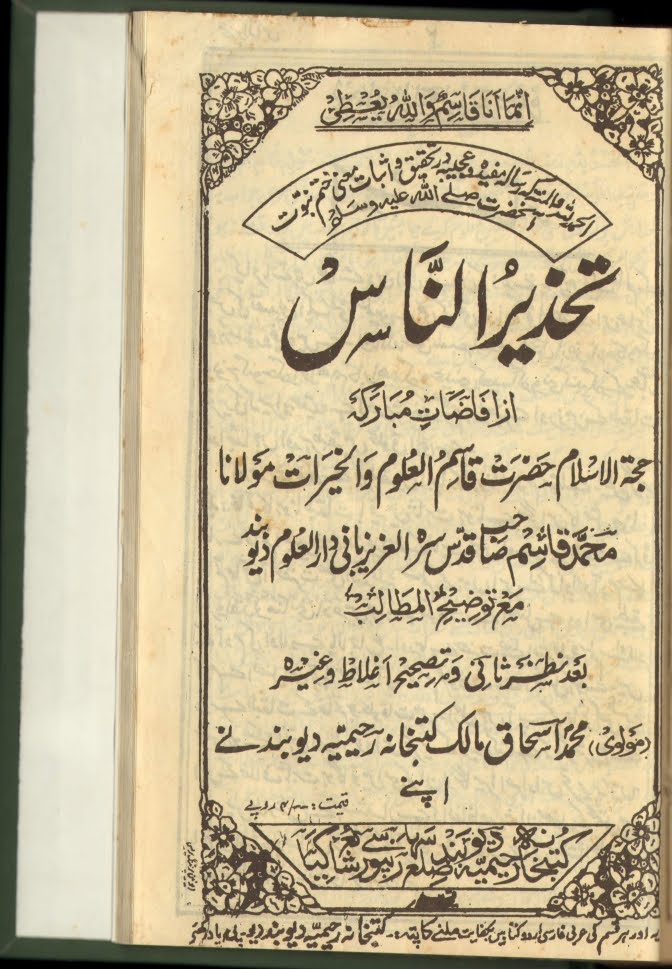 انما انا قاسم والله يعطى
الحمد للہ والمنت کہ رسالہ مفیدہ و عجیبہ در تحقیق و اثبات معنی ختم نبوت
آنحضرت صلے اللہ علیہ وسلم
تحذیرُ النَّاسْ
از افاضاتِ مُبارکہ
حجۃ الاسلام حضرت قاسم العلوم والخیرات مولانا
محمد قاسم صاحب قدس سرہ العزیز بانی دارالعلوم دیوبند
مع توضیح المطالب
بعد نظر ثانی و تصحیح اغلاط وغیرہ
(مولوی) محمد اسحاق مالک کتبخانہ رحیمیہ دیوبند نے
اپنے
قیمت: روپے
کتبخانہ رحیمیہ دیوبند ضلع سہارنپور سے شائع کیا
اور ہر قسم کی عربی فارسی اردو کتابیں بکفایت ملنے کا پتہ:۔ کتبخانہ رحیمیہ دیوبند یوپی